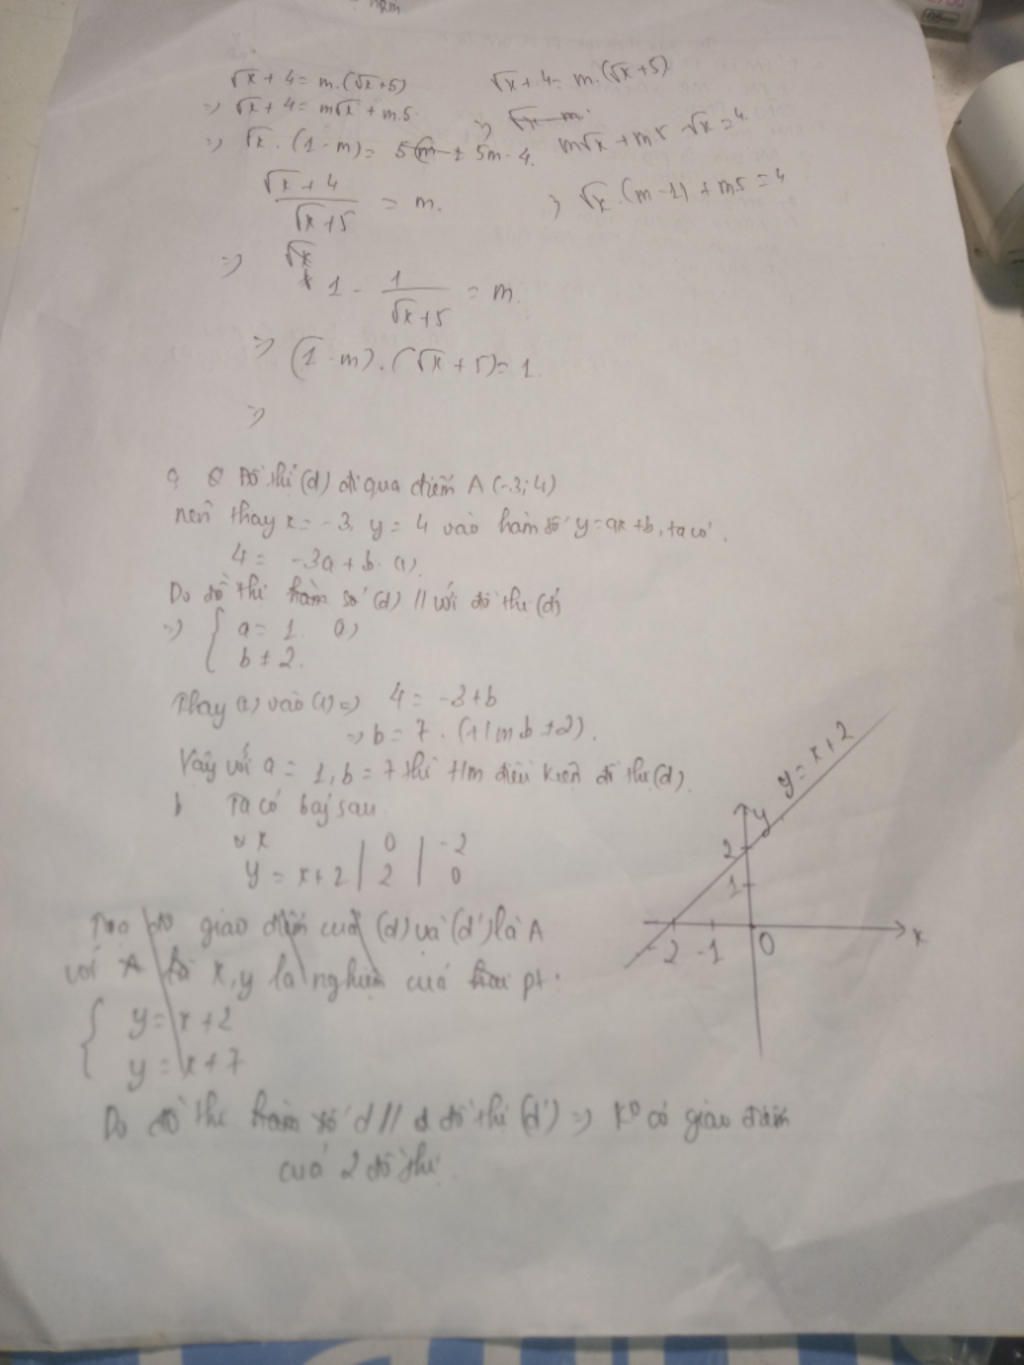 √x + 4 = m.(√x+5)
=> √x + 4 = m√x + m.5
=> √x . (1-m) = 5m 5m - 4.
(√x + 4)/(√x + 5) = m.
=> √x
1 - 1/(√x+5) = m.
=> (1-m).(√x + 5) = 1.
=>
√x + 4 = m.(√x+5)
=> √x - m
m√x + m5 - √x = 4.
=> √x.(m-1) + m5 = 4
a Đồ thị (d) đi qua điểm A (-3;4)
nên thay x = -3, y = 4 vào hàm số y=ax+b, ta có
4 = -3a + b. (1).
Do đồ thị hàm số (d) // với đồ thị (d')
=> { a = 1. (2)
b ≠ 2.
Thay (2) vào (1) => 4 = -3+b
=> b = 7. (t/m b ≠ 2).
Vậy với a = 1, b = 7 thì t/m điều kiện đồ thị (d).
b Ta có bảng sau
x | 0 | -2
y = x+2 | 2 | 0
Toạ độ giao điểm của (d) và (d') là A
với A là x, y là nghiệm của hai pt:
{ y = x+2
y = x+7
Do đồ thị hàm số d // đồ thị (d') => ko có giao điểm
của 2 đồ thị.
y = x+2
y
2
1
-2 -1 O x